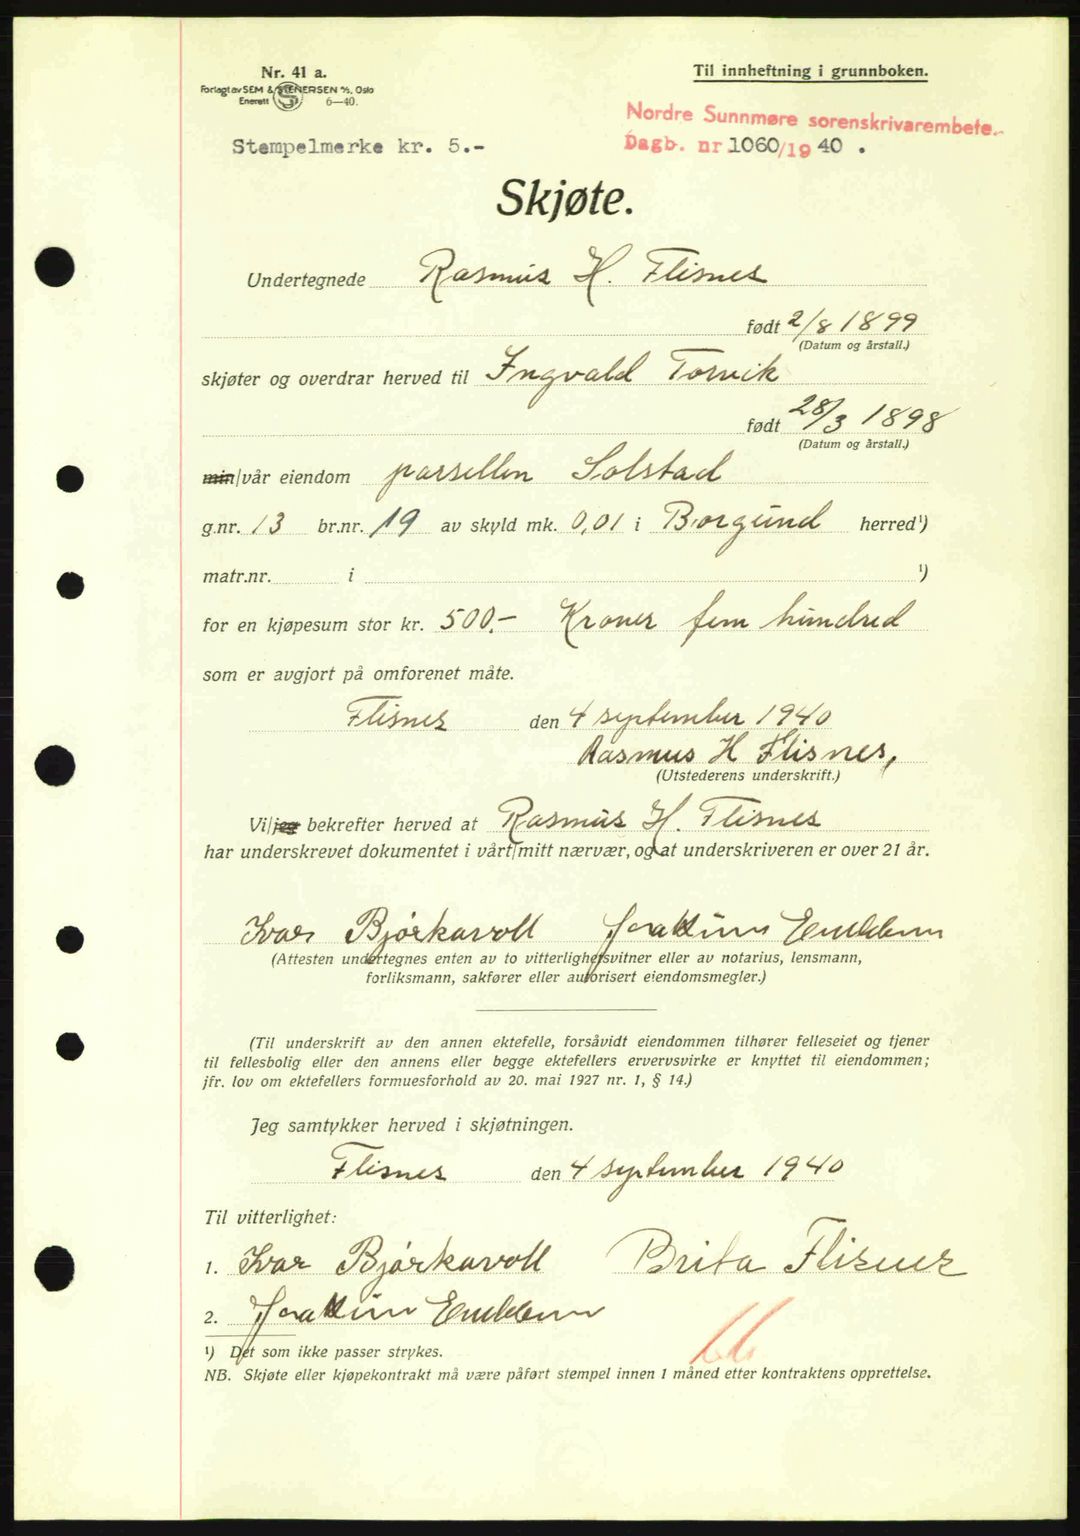 Nr. 41 a.
Forlagt av SEM & STENERSEN A/S, Oslo
Enerett 6—40.
Til innheftning i grunnboken.
Nordre Sunnmøre sorenskrivarembete.
Stempelmerke kr. 5.-
Dagb. nr 1060/19 40 .
Skjøte.
Undertegnede Rasmus H. Flisnes
født 2/8 1899
(Datum og årstall.)
skjøter og overdrar herved til Ingvald Torvik
født 28/3 1898
(Datum og årstall.)
min/vår eiendom parsellen Solstad
g.nr. 13 br.nr. 19 av skyld mk. 0,01 i Borgund herred¹)
matr.nr. i ¹)
for en kjøpesum stor kr. 500.- Kroner fem hundred
som er avgjort på omforenet måte.
Flisnes den 4 september 1940
Rasmus H Flisnes,
(Utstederens underskrift.)
Vi/jeg bekrefter herved at Rasmus H. Flisnes
har underskrevet dokumentet i vårt/mitt nærvær, og at underskriveren er over 21 år.
Ivar Bjørkavoll Joakim
(Attesten undertegnes enten av to vitterlighetsvitner eller av notarius, lensmann,
forliksmann, sakfører eller autorisert eiendomsmegler.)
(Til underskrift av den annen ektefelle, forsåvidt eiendommen tilhører felleseiet og tjener
til fellesbolig eller den annens eller begge ektefellers ervervsvirke er knyttet til eiendommen;
jfr. lov om ektefellers formuesforhold av 20. mai 1927 nr. 1, § 14.)
Jeg samtykker herved i skjøtningen.
Flisnes den 4 september 1940
Til vitterlighet:
1. Ivar Bjørkavoll Brita Flisnes
2. Joakim
¹) Det som ikke passer strykes.
NB. Skjøte eller kjøpekontrakt må være påført stempel innen 1 måned etter kontraktens opprettelse.